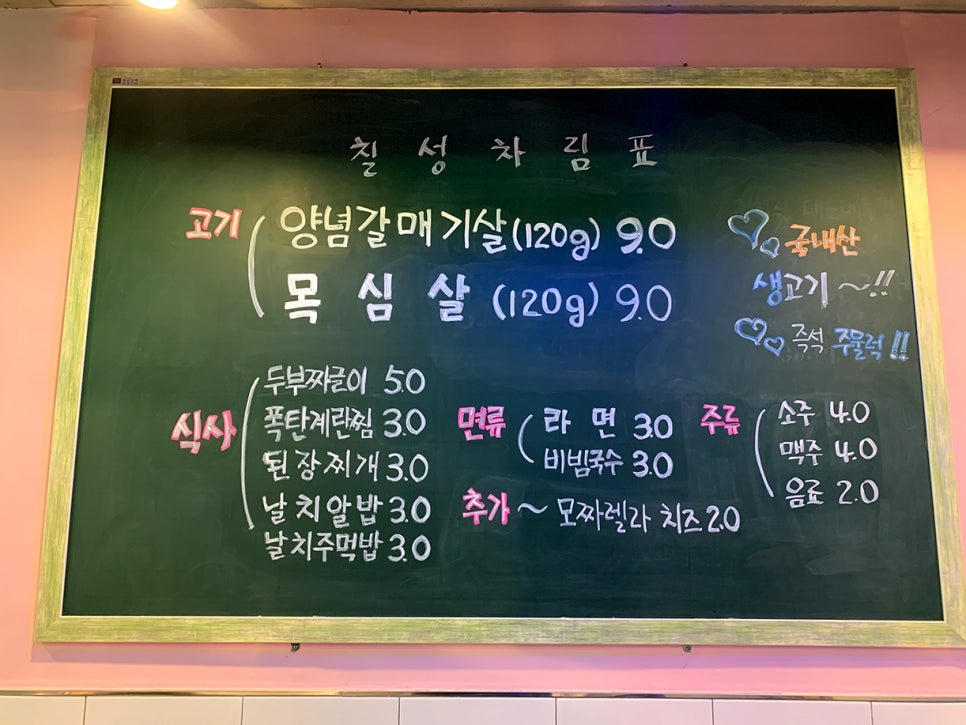 칠성차림표
고기 양념갈매기살(120g) 9.0
목심살 (120g) 9.0
국내산
생고기 ~!!
즉석 주물럭!!
식사 두부짜글이 5.0
폭탄계란찜 3.0
된장찌개 3.0
날치알밥 3.0
날치주먹밥 3.0
면류 라면 3.0
비빔국수 3.0
추가 ~ 모짜렐라 치즈 2.0
주류 소주 4.0
맥주 4.0
음료 2.0